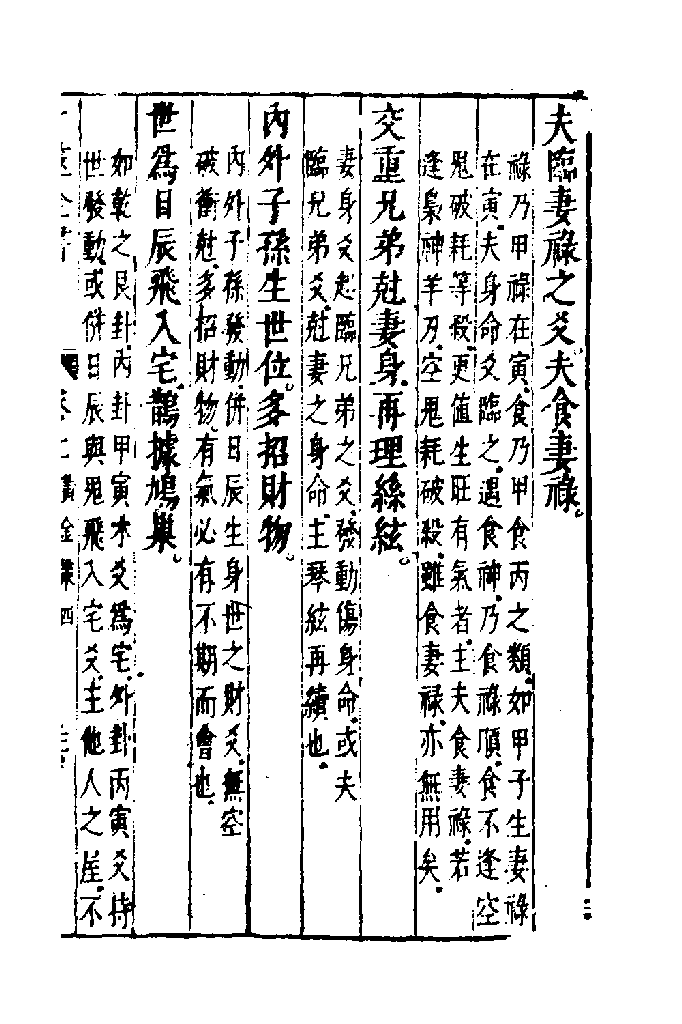 夫臨妻祿之爻。夫食妻祿。
祿乃甲祿在寅。食乃甲食丙之類。如甲子生妻祿
在寅。夫身命爻臨之。遇食神。乃食祿順。食不逢空
鬼破耗等殺。更值生旺有氣者。主夫食妻祿。若
逢梟神羊刃。空鬼耗破殺。雖食妻祿。亦無用矣。
交重兄弟尅妻身。再理絲絃。
妻身爻起臨兄弟之爻。發動傷身命。或夫
臨兄弟爻。尅妻之身命。主琴絃再續也。
內外子孫生世位。多招財物。
內外子孫發動。併日辰生身世之財爻。無空
破衝尅。多招財物。有氣必有不期而會也。
世為日辰飛入宅。鵲據鳩巢。
如乾之艮卦。內卦甲寅木爻爲宅。外卦丙寅爻持
世發動。或併日辰與鬼飛入宅爻。主他人之屋。不
卷二 黃金 四